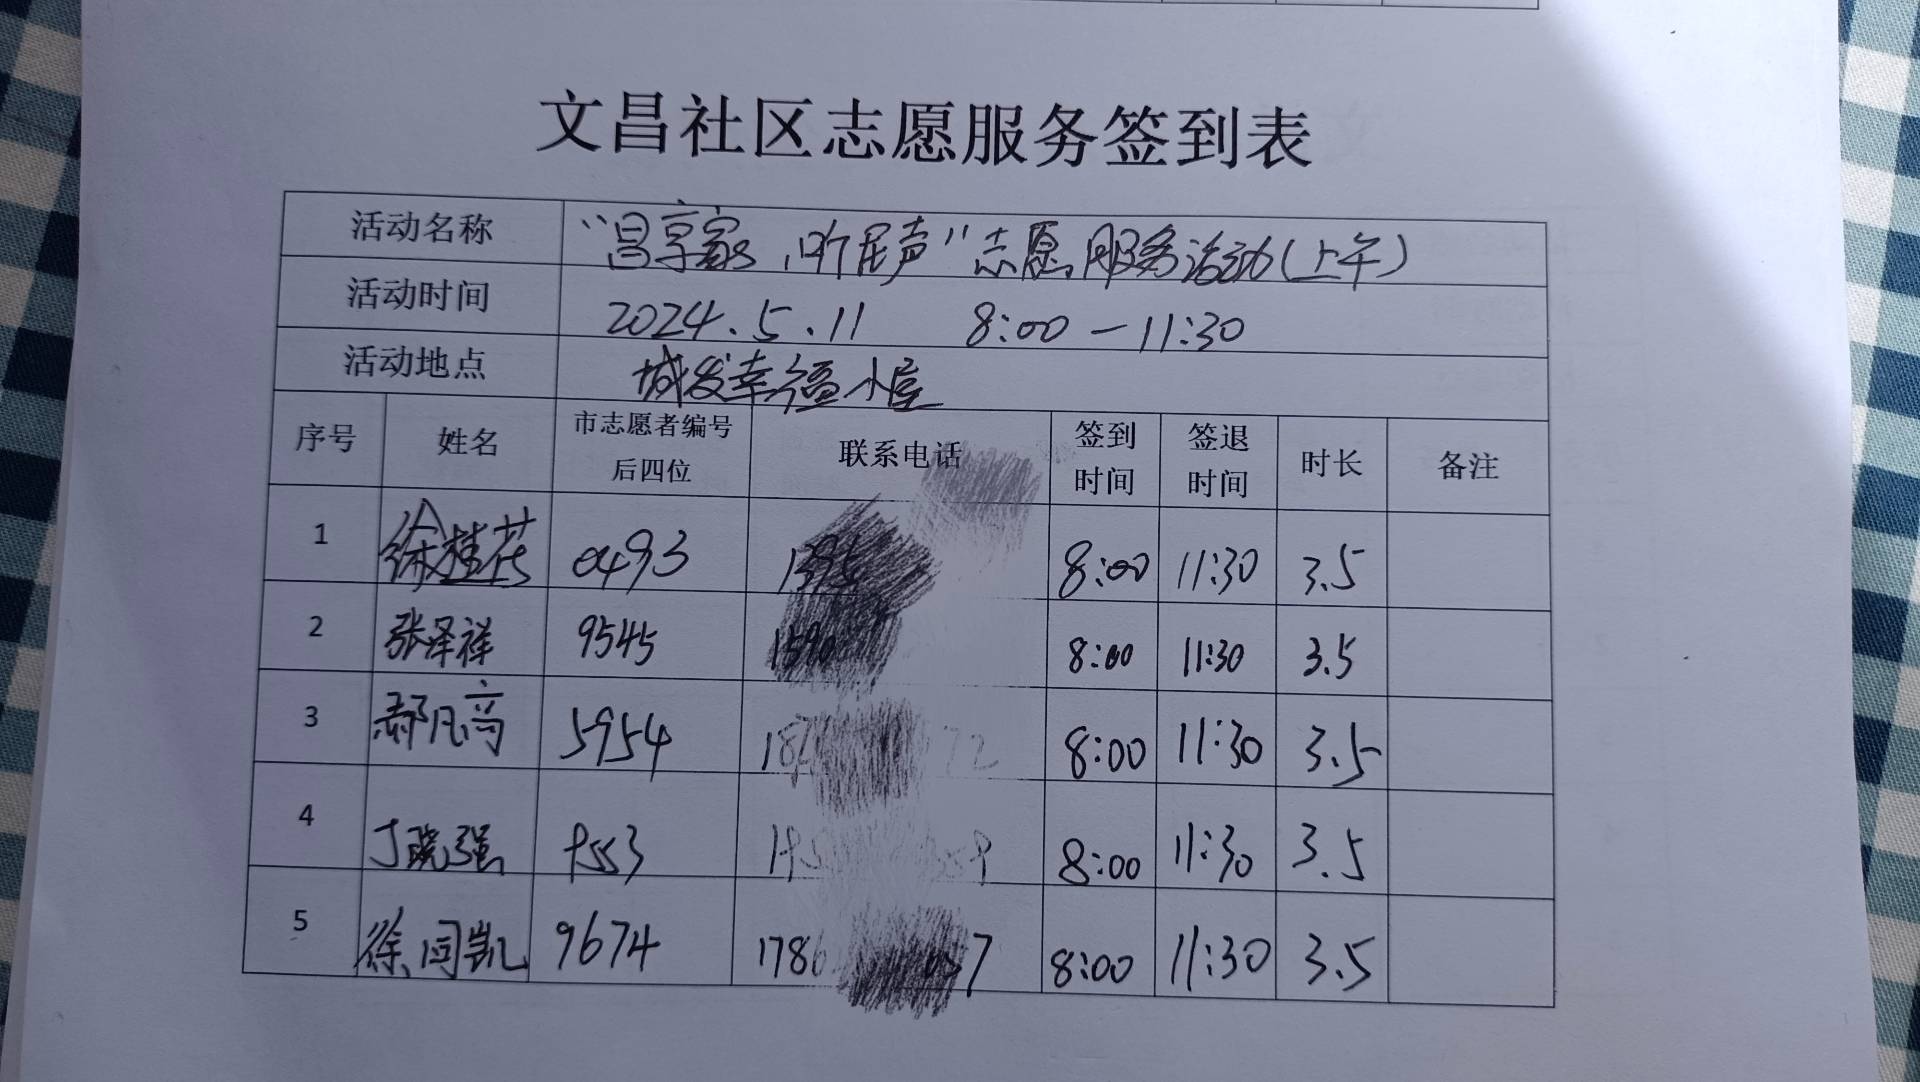 文昌社区志愿服务签到表
活动名称 “昌享家，听居声”志愿服务活动(上午)
活动时间 2024.5.11 8:00—11:30
活动地点 城发幸福小屋
序号 姓名 市志愿者编号后四位 联系电话 签到时间 签退时间 时长 备注
1 徐桂花 0493 1395 8:00 11:30 3.5
2 张泽祥 9545 1590 8:00 11:30 3.5
3 郝凡高 5954 8:00 11:30 3.5
4 丁晓强 9553 8:00 11:30 3.5
5 徐闫凯 9674 1786 7 8:00 11:30 3.5